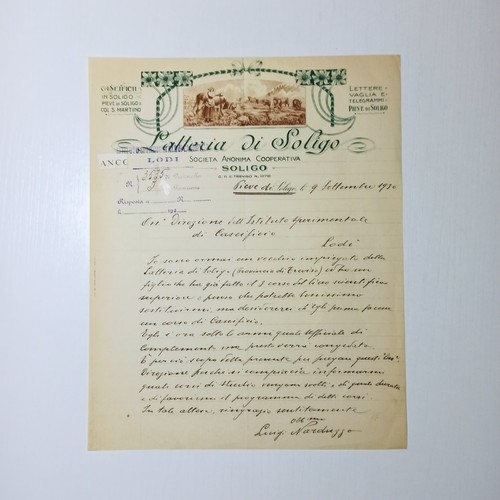 CASEIFICII
IN SOLIGO
PIEVE DI SOLIGO E
COL S. MARTINO
LETTERE
VAGLIA E
TELEGRAMMI
PIEVE DI SOLIGO
Latteria di Soligo
SOCIETÀ ANONIMA COOPERATIVA
SOLIGO
C.P.E. TREVISO N. 1078
LODI
N.
Risposta a
Pieve di Soligo, li 9 Settembre 1930
On. Direzione dell'Istituto Sperimentale
di Caseificio
Lodi
Io sono ormai un vecchio impiegato della
Latteria di Soligo (Provincia di Treviso) ed ho un
figlio che ha già fatto il 3 corso del liceo scientifico
superiore e penso che potrebbe benissimo
sostituirmi, ma desidererei ch'Egli prima facesse
un corso di Caseificio.
Egli è ora sotto le armi quale Ufficiale di
Complemento ma presto verrà congedato.
È perciò scopo della presente per pregare quest'On.
Direzione perchè si compiaccia informarmi
quali corsi di studio vengano svolti, e di quale durata
e di favorirmi il programma di detti corsi.
In tale attesa, ringrazio sentitamente
Luigi Narduzzo